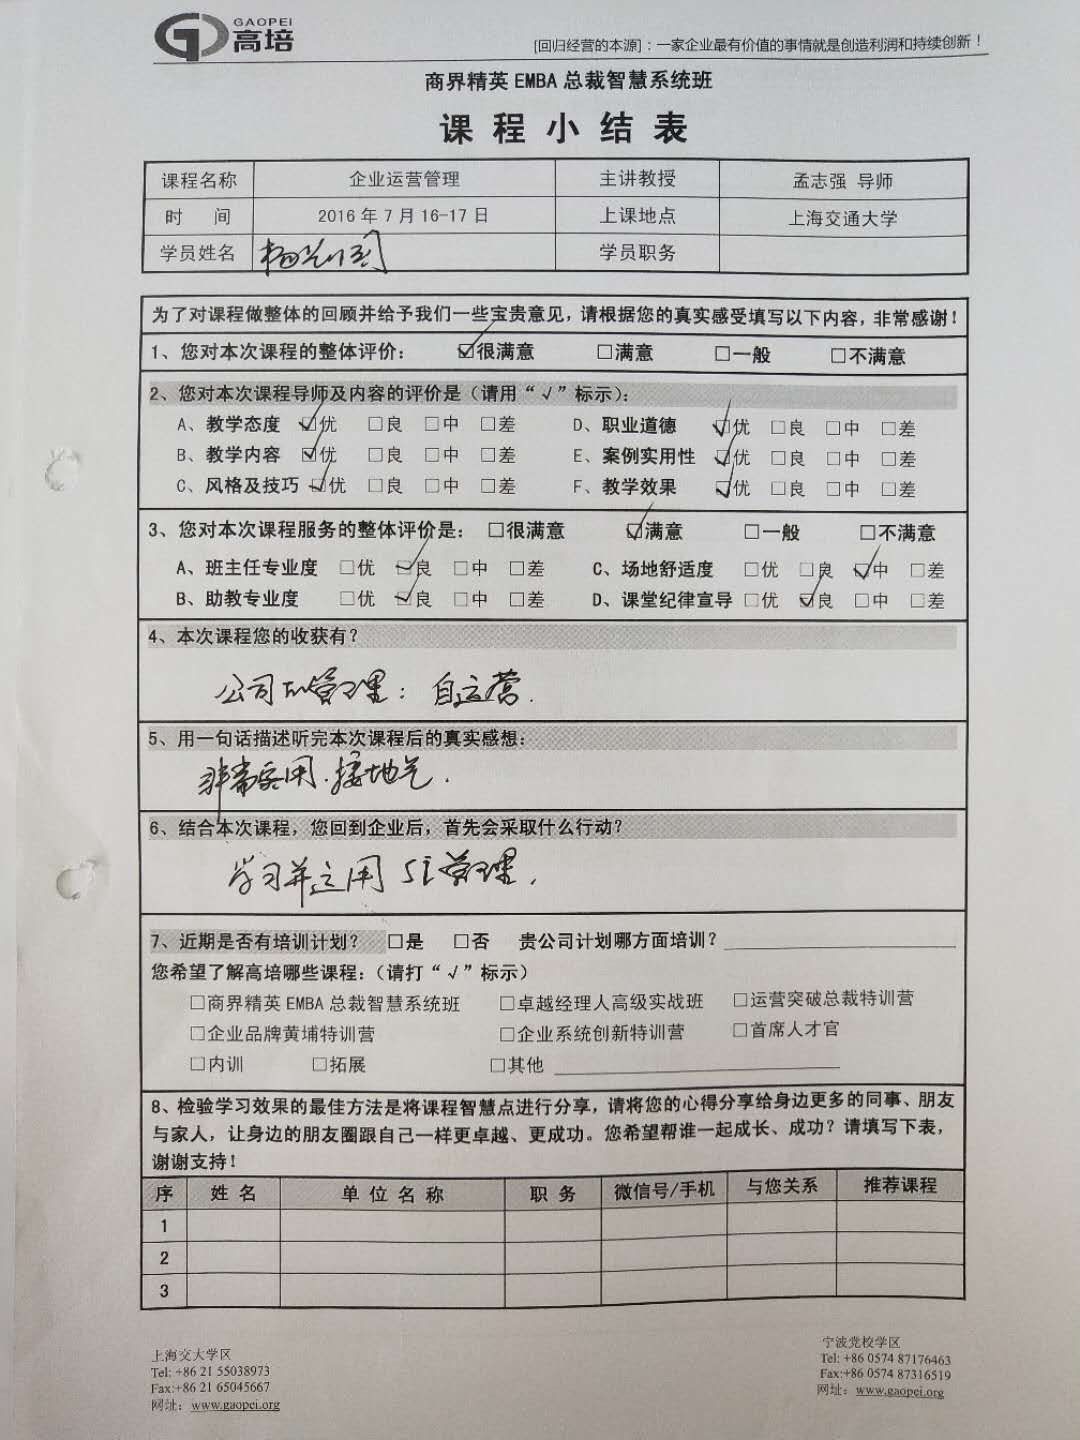 GAOPEI
高培
[回归经营的本源]：一家企业最有价值的事情就是创造利润和持续创新！
商界精英 EMBA 总裁智慧系统班
课程小结表
课程名称 企业运营管理 主讲教授 孟志强 导师
时 间 2016 年 7 月 16-17 日 上课地点 上海交通大学
学员姓名 学员职务
为了对课程做整体的回顾并给予我们一些宝贵意见，请根据您的真实感受填写以下内容，非常感谢！
1、您对本次课程的整体评价： ☑很满意 □满意 □一般 □不满意
2、您对本次课程导师及内容的评价是（请用“√”标示）：
A、教学态度 ☑优 □良 □中 □差 D、职业道德 ☑优 □良 □中 □差
B、教学内容 ☑优 □良 □中 □差 E、案例实用性 ☑优 □良 □中 □差
C、风格及技巧 ☑优 □良 □中 □差 F、教学效果 ☑优 □良 □中 □差
3、您对本次课程服务的整体评价是： □很满意 ☑满意 □一般 □不满意
A、班主任专业度 □优 ☑良 □中 □差 C、场地舒适度 □优 □良 ☑中 □差
B、助教专业度 □优 ☑良 □中 □差 D、课堂纪律宣导 □优 ☑良 □中 □差
4、本次课程您的收获有？
公司的管理：自运营.
5、用一句话描述听完本次课程后的真实感想：
非常实用.接地气.
6、结合本次课程，您回到企业后，首先会采取什么行动？
学习并运用 管理.
7、近期是否有培训计划？ □是 □否 贵公司计划哪方面培训？
您希望了解高培哪些课程：（请打“√”标示）
□商界精英 EMBA 总裁智慧系统班 □卓越经理人高级实战班 □运营突破总裁特训营
□企业品牌黄埔特训营 □企业系统创新特训营 □首席人才官
□内训 □拓展 □其他
8、检验学习效果的最佳方法是将课程智慧点进行分享，请将您的心得分享给身边更多的同事、朋友
与家人，让身边的朋友圈跟自己一样更卓越、更成功。您希望帮谁一起成长、成功？请填写下表，
谢谢支持！
序 姓名 单位名称 职务 微信号/手机 与您关系 推荐课程
1
2
3
上海交大学区
Tel: +86 21 55038973
Fax:+86 21 65045667
网址：www.gaopei.org
宁波党校学区
Tel: +86 0574 87176463
Fax:+86 0574 87316519
网址：www.gaopei.org